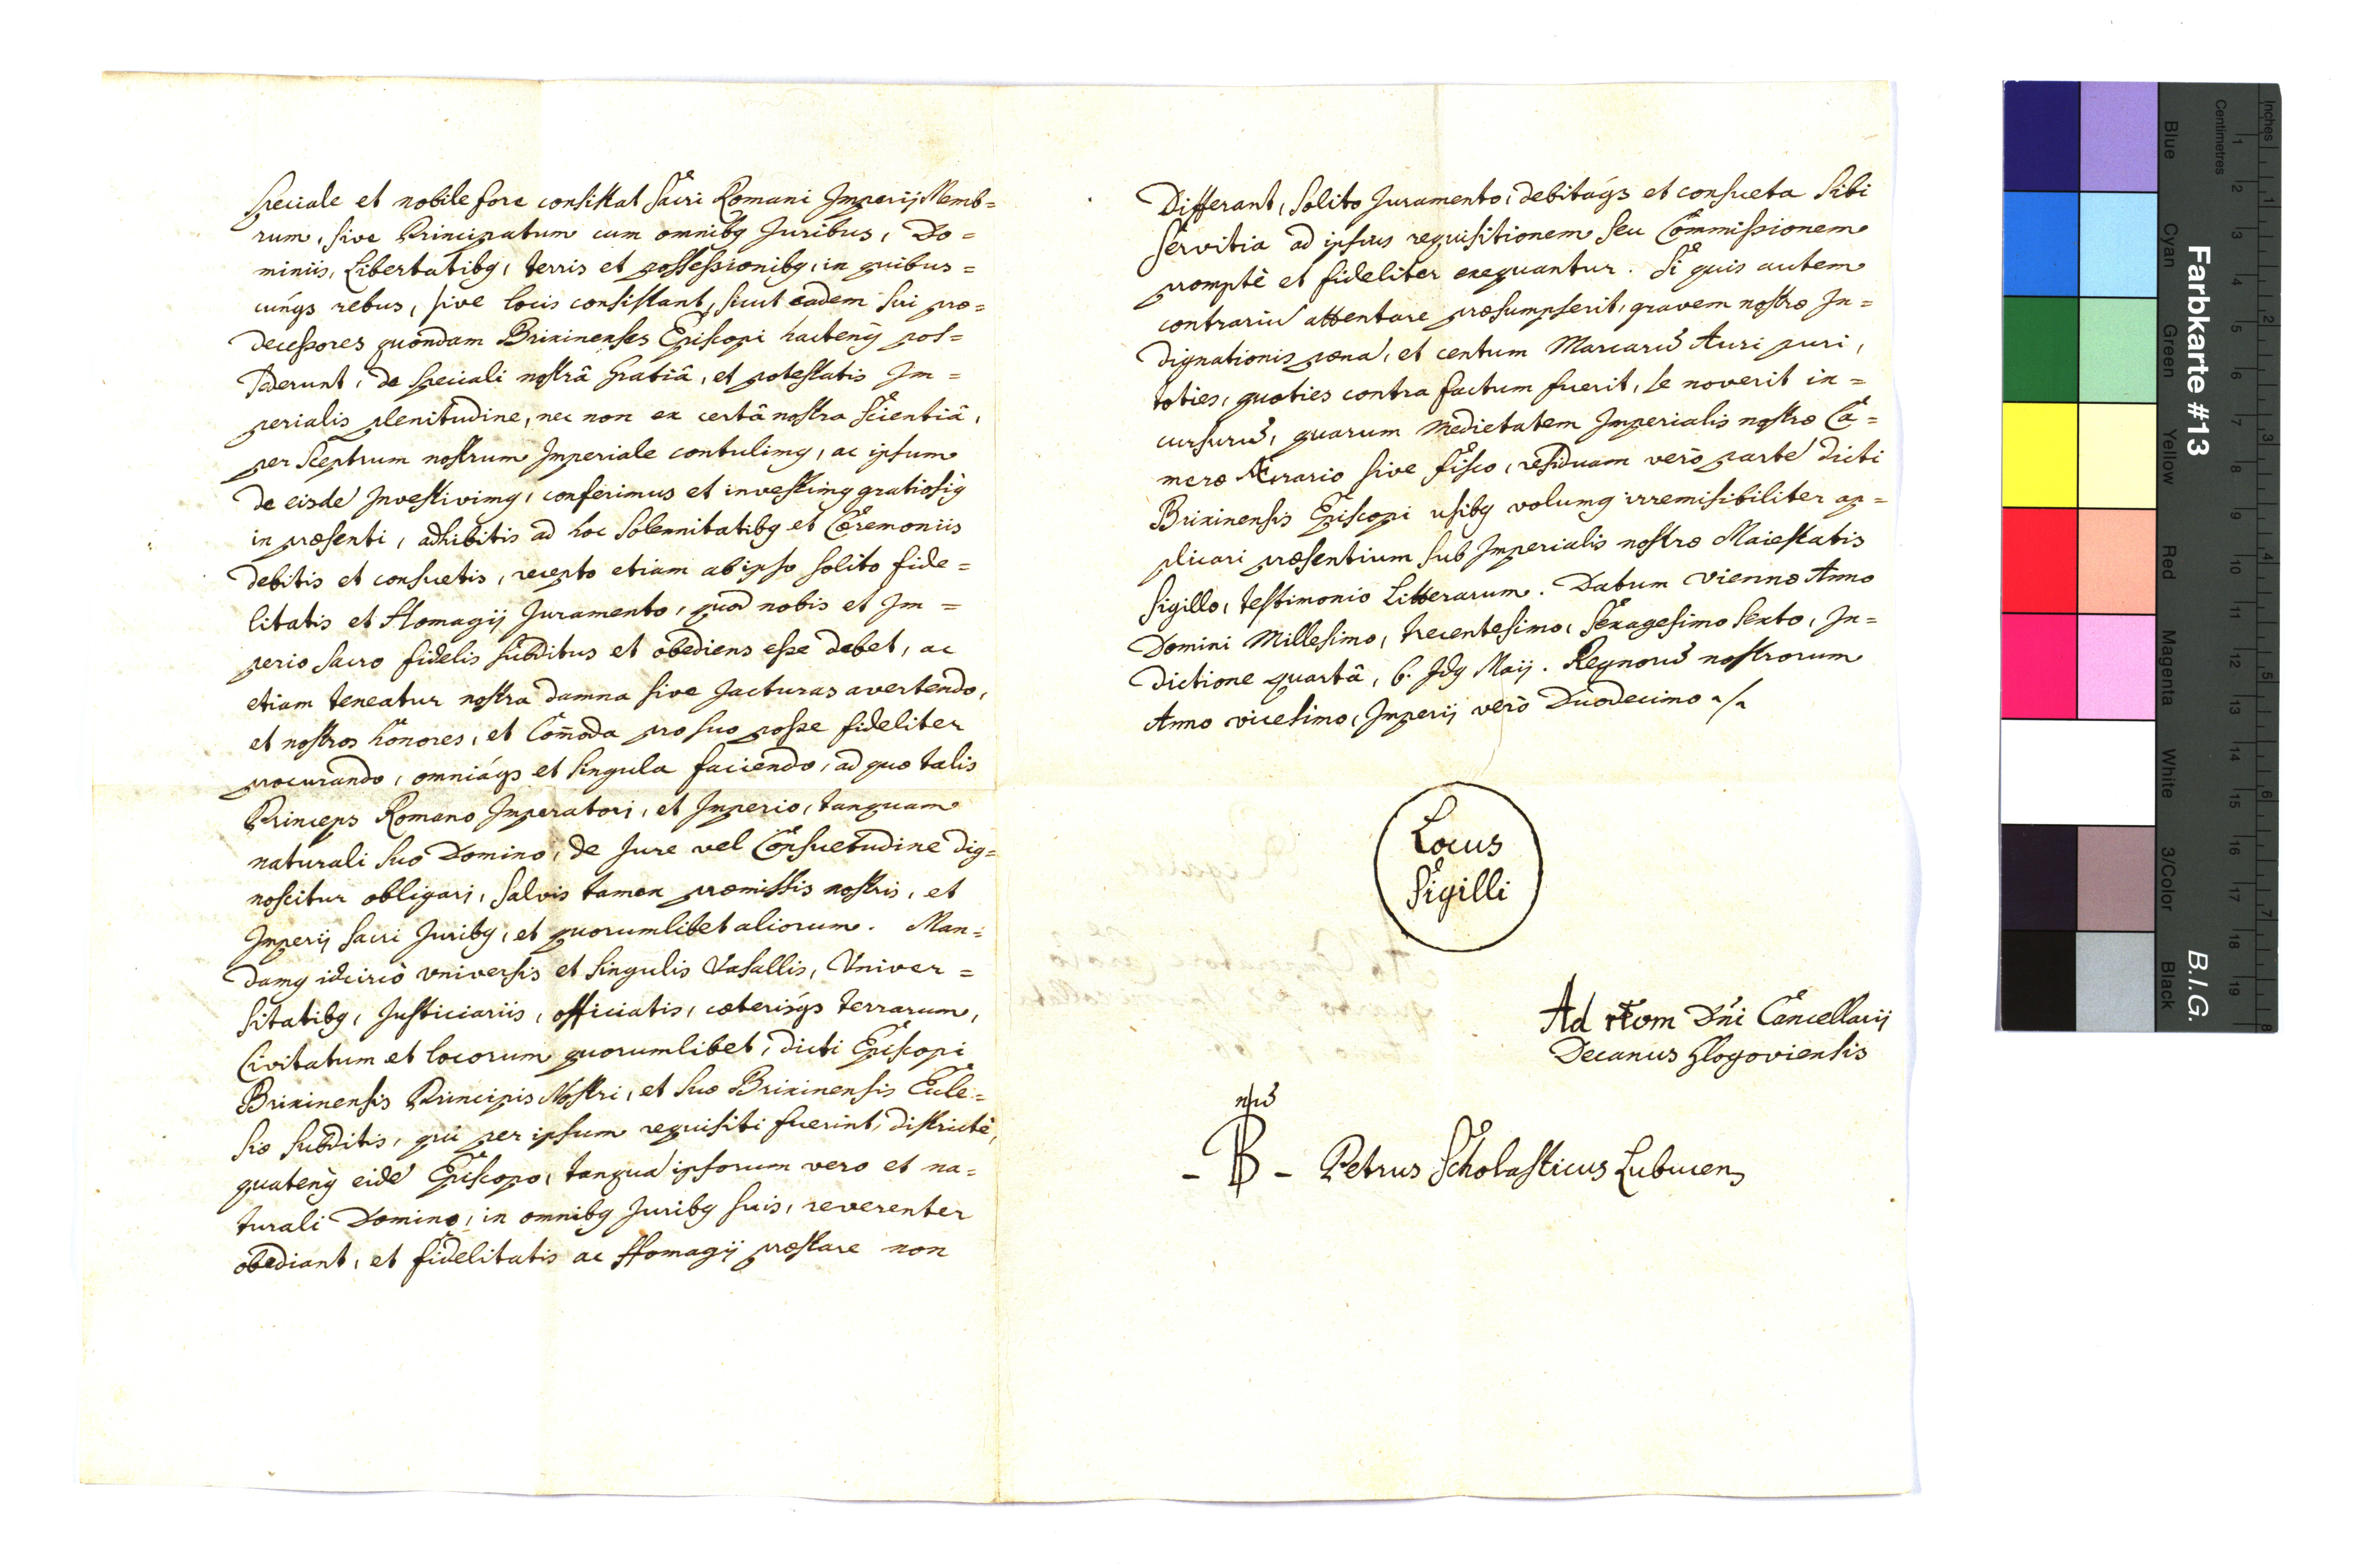 Speciale et nobile fore consistat Sacri Romani Imperij Memb=
rum, sive Principatum cum omnibq Juribus, Do=
miniis, Libertatibq, terris et possessionibq, in quibus=
cunqs rebus, sive locis consistant, sicut eadem sui præ=
decessores quondam Brixinenses Episcopi hactenq pos=
sederunt, de speciali nostrâ gratiâ, et potestatis Im=
perialis plenitudine, nec non ex certâ nostra scientiâ,
per Sceptrum nostrum Imperiale contulimq, ac ipsum
de eisdē Investivimq, conferimus et investimq gratiosiq
in præsenti, adhibitis ad hoc Solemnitatibq et Cæremoniis
debitis et consuetis, recepto etiam ab ipso solito fide=
litatis et Homagij Juramento, quod nobis et Im=
perio sacro fidelis subditus et obediens esse debet, ac
etiam teneatur nostra damna sive Jacturas avertendo,
et nostros honores, et Com̄oda pro suo posse fideliter
procurando, omniáqs et singula faciendo, ad quæ talis
Princeps Romano Imperatori, et Imperio, tanquam
naturali suo Domino, de Jure vel Consuetudine dig=
noscitur obligari, salvis tamen præmissis nostris, et
Imperij sacri Juribq, et quorumlibet aliorum. Man=
damq idcircò universis et singulis Vasallis, Univer=
sitatibq, Justiciariis, officiatis, cæterisqs terrarum,
Civitatum et locorum quorumlibet, dicti Episcopi
Brixinensis Principis Nostri, et suæ Brixinensis Eccle=
siæ subditis, qui per ipsum requisiti fuerint, districtè,
quatenq eidē Episcopo, tanquā ipsorum vero et na=
turali Domino, in omnibq Juribq suis, reverenter
obediant, et fidelitatis ac Homagij præstare non
Differant, solito Juramento, debitáqs et consueta sibi
servitia ad ipsius requisitionem seu Commissionem
promptè et fideliter exequantur. Si quis autem
contrariū attentare præsumpserit, gravem nostræ In=
dignationis pœnā, et centum Marcarū Auri puri,
toties, quoties contra factum fuerit, se noverit in=
cursurū, quarum medietatem Imperialis nostræ Ca=
meræ Ærario sive fisco, residuam verò partē dicti
Brixinensis Episcopi usibq volumq irremisibiliter ap=
plicari præsentium sub Imperialis nostræ Maiestatis
sigillo, testimonio Litterarum. Datum Viennæ Anno
Domini Millesimo, trecentesimo, sexagesimo sexto, In=
dictione quartâ, 6. Idq Maij. Regnorū nostrorum
Anno vicesimo, Imperij verò Duodecimo
Locus
Sigilli
Ad rtom Dn̄i Cancellarij
Decanus Glogoviensis
- B - Petrus Scholasticus Lubucens
Farbkarte #13
B.I.G.
Inches
Centimetres
1 2 3 4 5 6 7 8 9 10 11 12 13 14 15 16 17 18 19
1 2 3 4 5 6 7 8
Blue Cyan Green Yellow Red Magenta White 3/Color Black